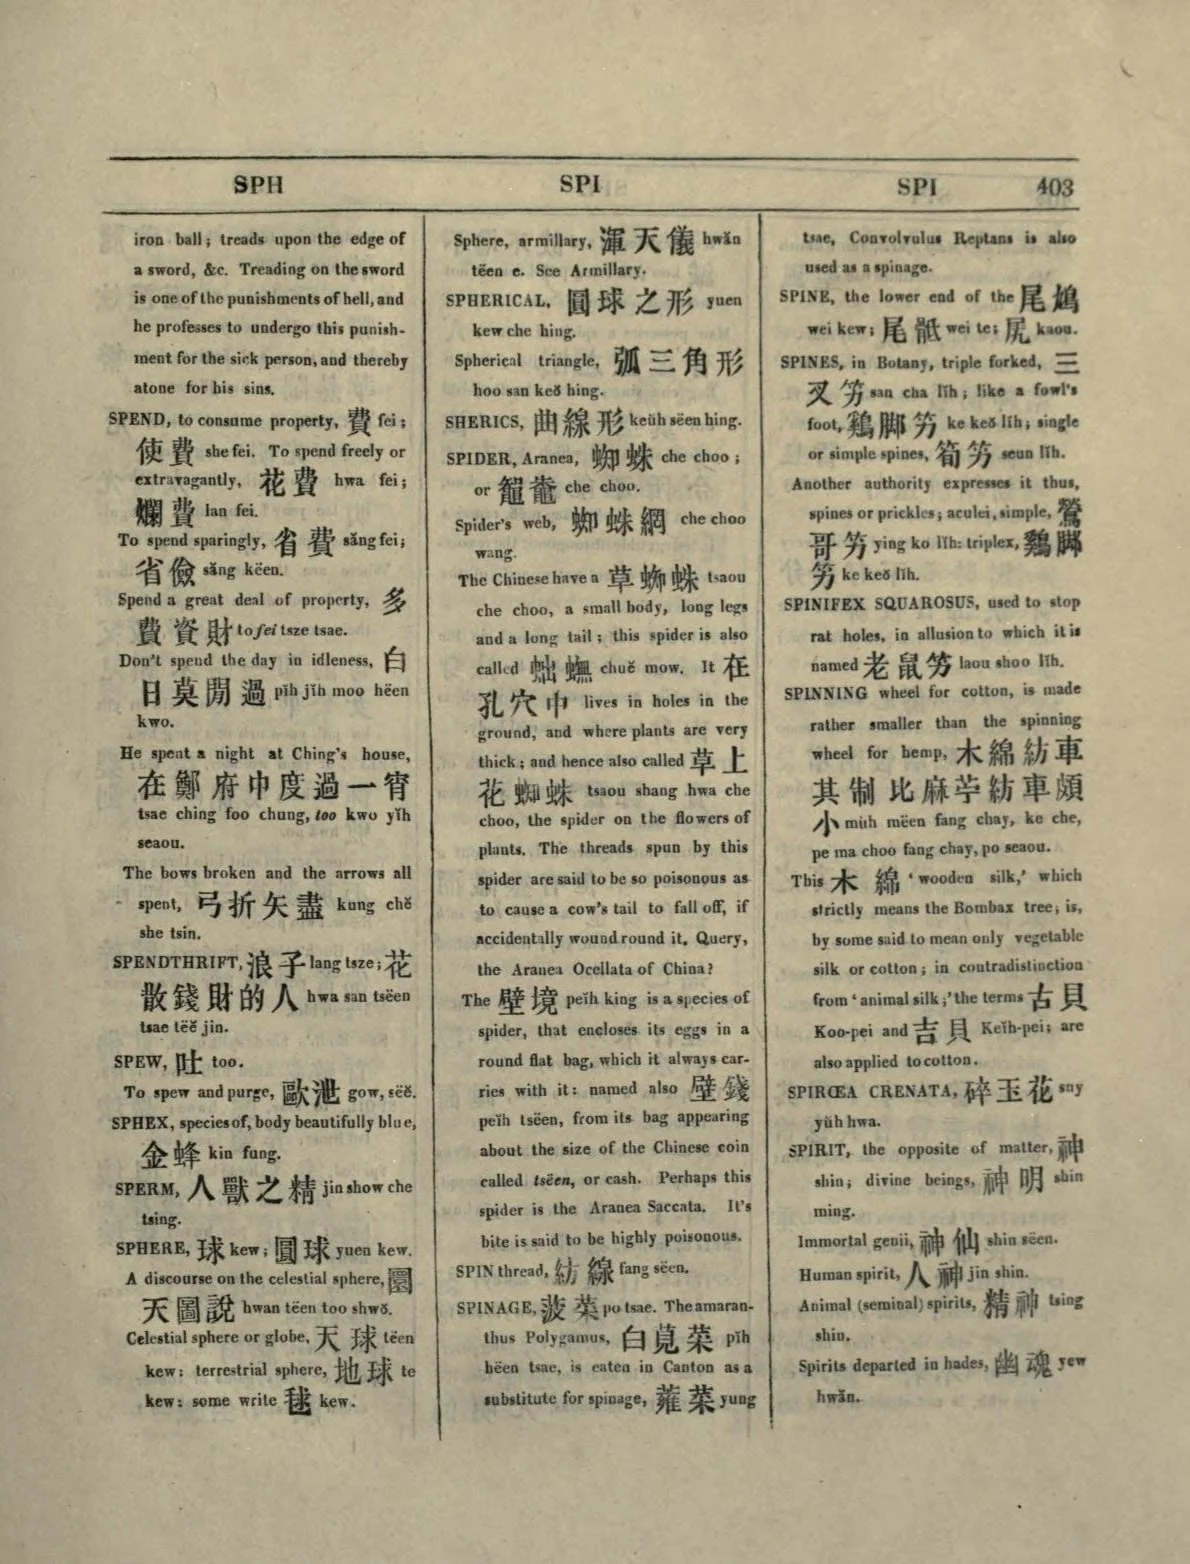 SPH
SPI
SPI 403
iron ball; treads upon the edge of
a sword, &c. Treading on the sword
is one of the punishments of hell, and
he professes to undergo this punish-
ment for the sick person, and thereby
atone for his sins.
SPEND, to consume property, 費 fei;
使費 she fei. To spend freely or
extravagantly, 花費 hwa fei;
爛費 lan fei.
To spend sparingly, 省費 săng fei;
省儉 săng këen.
Spend a great deal of property, 多
費資財 to fei tsze tsae.
Don't spend the day in idleness, 白
日莫閒過 pĭh jĭh moo hëen
kwo.
He spent a night at Ching's house,
在鄭府中度過一宵
tsae ching foo chung, too kwo yĭh
seaou.
The bows broken and the arrows all
spent, 弓折矢盡 kung chĕ
she tsin.
SPENDTHRIFT, 浪子 lang tsze; 花
散錢財的人 hwa san tsëen
tsae tëĕ jin.
SPEW, 吐 too.
To spew and purge, 歐泄 gow, sëĕ.
SPHEX, species of, body beautifully blue,
金蜂 kin fung.
SPERM, 人獸之精 jin show che
tsing.
SPHERE, 球 kew; 圓球 yuen kew.
A discourse on the celestial sphere, 圜
天圖說 hwan tëen too shwŏ.
Celestial sphere or globe, 天球 tëen
kew: terrestrial sphere, 地球 te
kew: some write 毬 kew.
Sphere, armillary, 渾天儀 hwăn
tëen e. See Armillary.
SPHERICAL, 圓球之形 yuen
kew che hing.
Spherical triangle, 弧三角形
hoo san keŏ hing.
SHERICS, 曲線形 keüh sëen hing.
SPIDER, Aranea, 蜘蛛 che choo;
or 鼅鼄 che choo.
Spider's web, 蜘蛛網 che choo
wang.
The Chinese have a 草蜘蛛 tsaou
che choo, a small body, long legs
and a long tail; this spider is also
called 蝃蟱 chuĕ mow. It 在
孔穴中 lives in holes in the
ground, and where plants are very
thick; and hence also called 草上
花蜘蛛 tsaou shang hwa che
choo, the spider on the flowers of
plants. The threads spun by this
spider are said to be so poisonous as
to cause a cow's tail to fall off, if
accidentally wound round it. Query,
the Aranea Ocellata of China?
The 壁境 peĭh king is a species of
spider, that encloses its eggs in a
round flat bag, which it always car-
ries with it: named also 壁錢
peĭh tsëen, from its bag appearing
about the size of the Chinese coin
called tsëen, or cash. Perhaps this
spider is the Aranea Saccata. It's
bite is said to be highly poisonous.
SPIN thread, 紡線 fang sëen.
SPINAGE, 菠菜 po tsae. The amaran-
thus Polygamus, 白莧菜 pĭh
hëen tsae, is eaten in Canton as a
substitute for spinage, 蕹菜 yung
tsae, Convolvulus Reptans is also
used as a spinage.
SPINE, the lower end of the 尾鳩
wei kew; 尾骶 wei te; 尻 kaou.
SPINES, in Botany, triple forked, 三
叉竻 san cha lĭh; like a fowl's
foot, 鷄脚竻 ke keŏ lĭh; single
or simple spines, 筍竻 seun lĭh.
Another authority expresses it thus,
spines or prickles; aculei, simple, 鶯
哥竻 ying ko lĭh: triplex, 鷄脚
竻 ke keŏ lĭh.
SPINIFEX SQUAROSUS, used to stop
rat holes, in allusion to which it is
named 老鼠竻 laou shoo lĭh.
SPINNING wheel for cotton, is made
rather smaller than the spinning
wheel for hemp, 木綿紡車
其制比麻苧紡車頗
小 mŭh mëen fang chay, ke che,
pe ma choo fang chay, po seaou.
This 木綿 ‘wooden silk,’ which
strictly means the Bombax tree; is,
by some said to mean only vegetable
silk or cotton; in contradistinction
from ‘animal silk;’ the terms 古貝
Koo-pei and 吉貝 Keĭh-pei; are
also applied to cotton.
SPIRŒA CRENATA, 碎玉花 suy
yŭh hwa.
SPIRIT, the opposite of matter, 神
shin; divine beings, 神明 shin
ming.
Immortal genii, 神仙 shin sëen.
Human spirit, 人神 jin shin.
Animal (seminal) spirits, 精神 tsing
shin.
Spirits departed in hades, 幽魂 yew
hwăn.